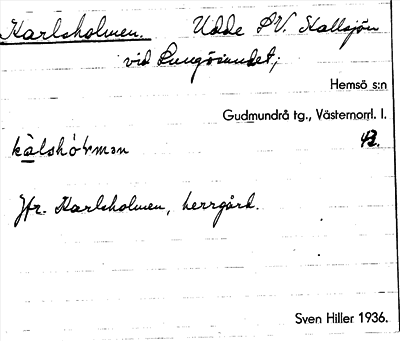 Karlsholmen. Udde SV. Stallsjön
vid Lungösundet;
Hemsö s:n
Gudmundrå tg., Västernorrl. l.
kàlshól'mən
43.
Jfr. Karlsholmen, herrgård.
Sven Hiller 1936.